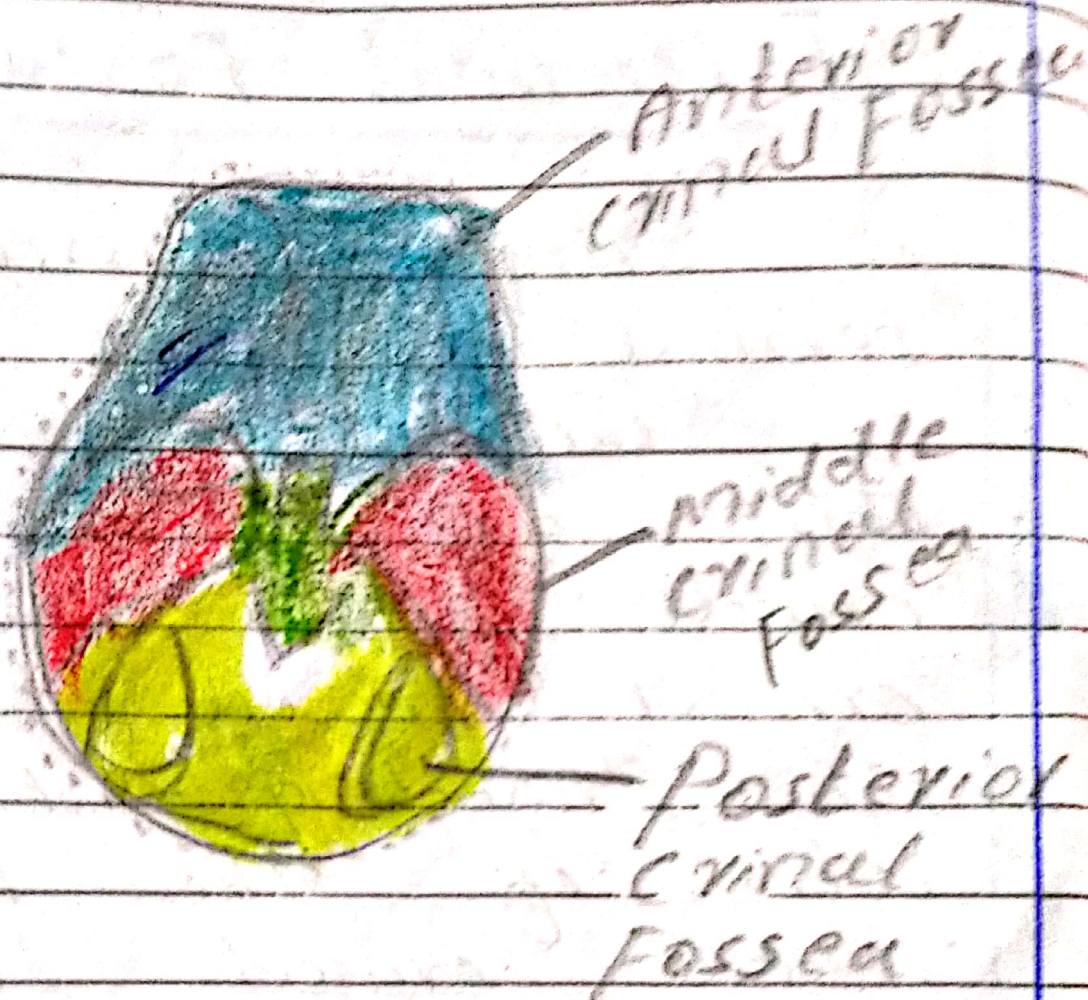 Anterior
crinal Fossea
Middle
crinal
Fossea
Posterior
crinal
Fossea